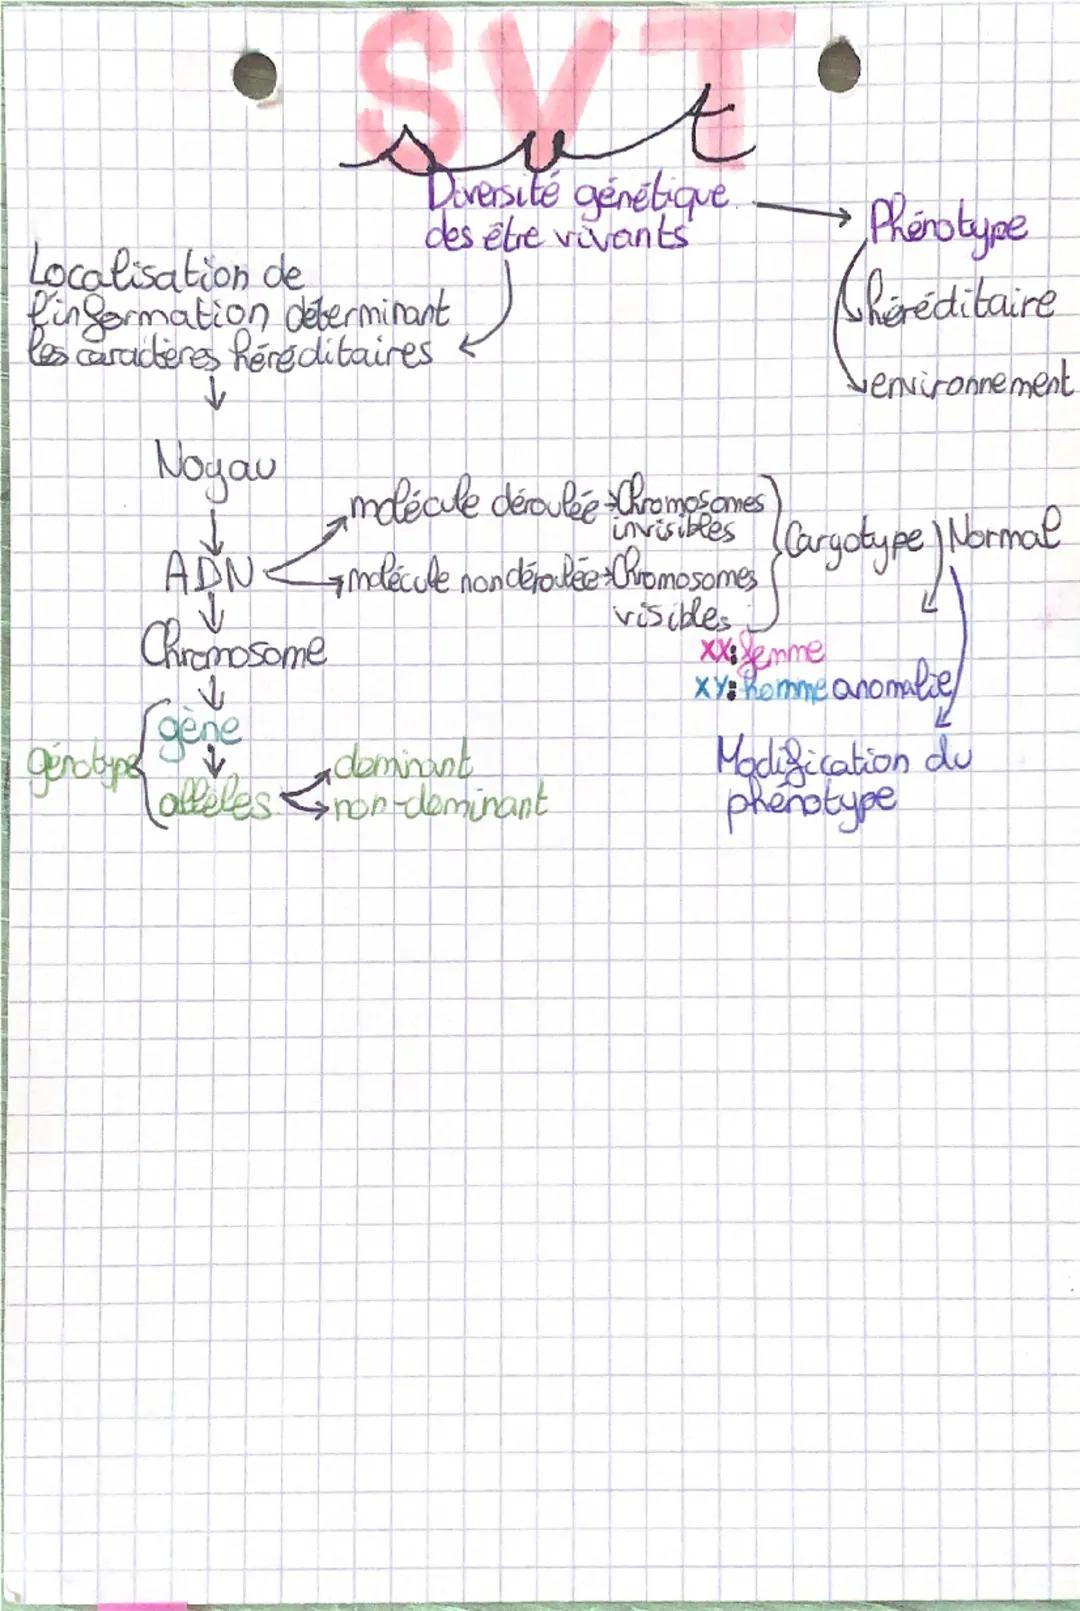 SVT
svt
Diversité génétique
des être vivants
Phénotype
héréditaire
environnement
Localisation de
l'information déterminant
les caractères héréditaires
Noyau
ADN
molécule déroulée → Chromosomes
invisibles
molécule non déroulée → Chromosomes
visibles
Caryotype
Normal
XX: femme
XY: homme
anomalie
Modification du
phénotype
Chromosome
génotype
gène
allèles
dominant
non-dominant